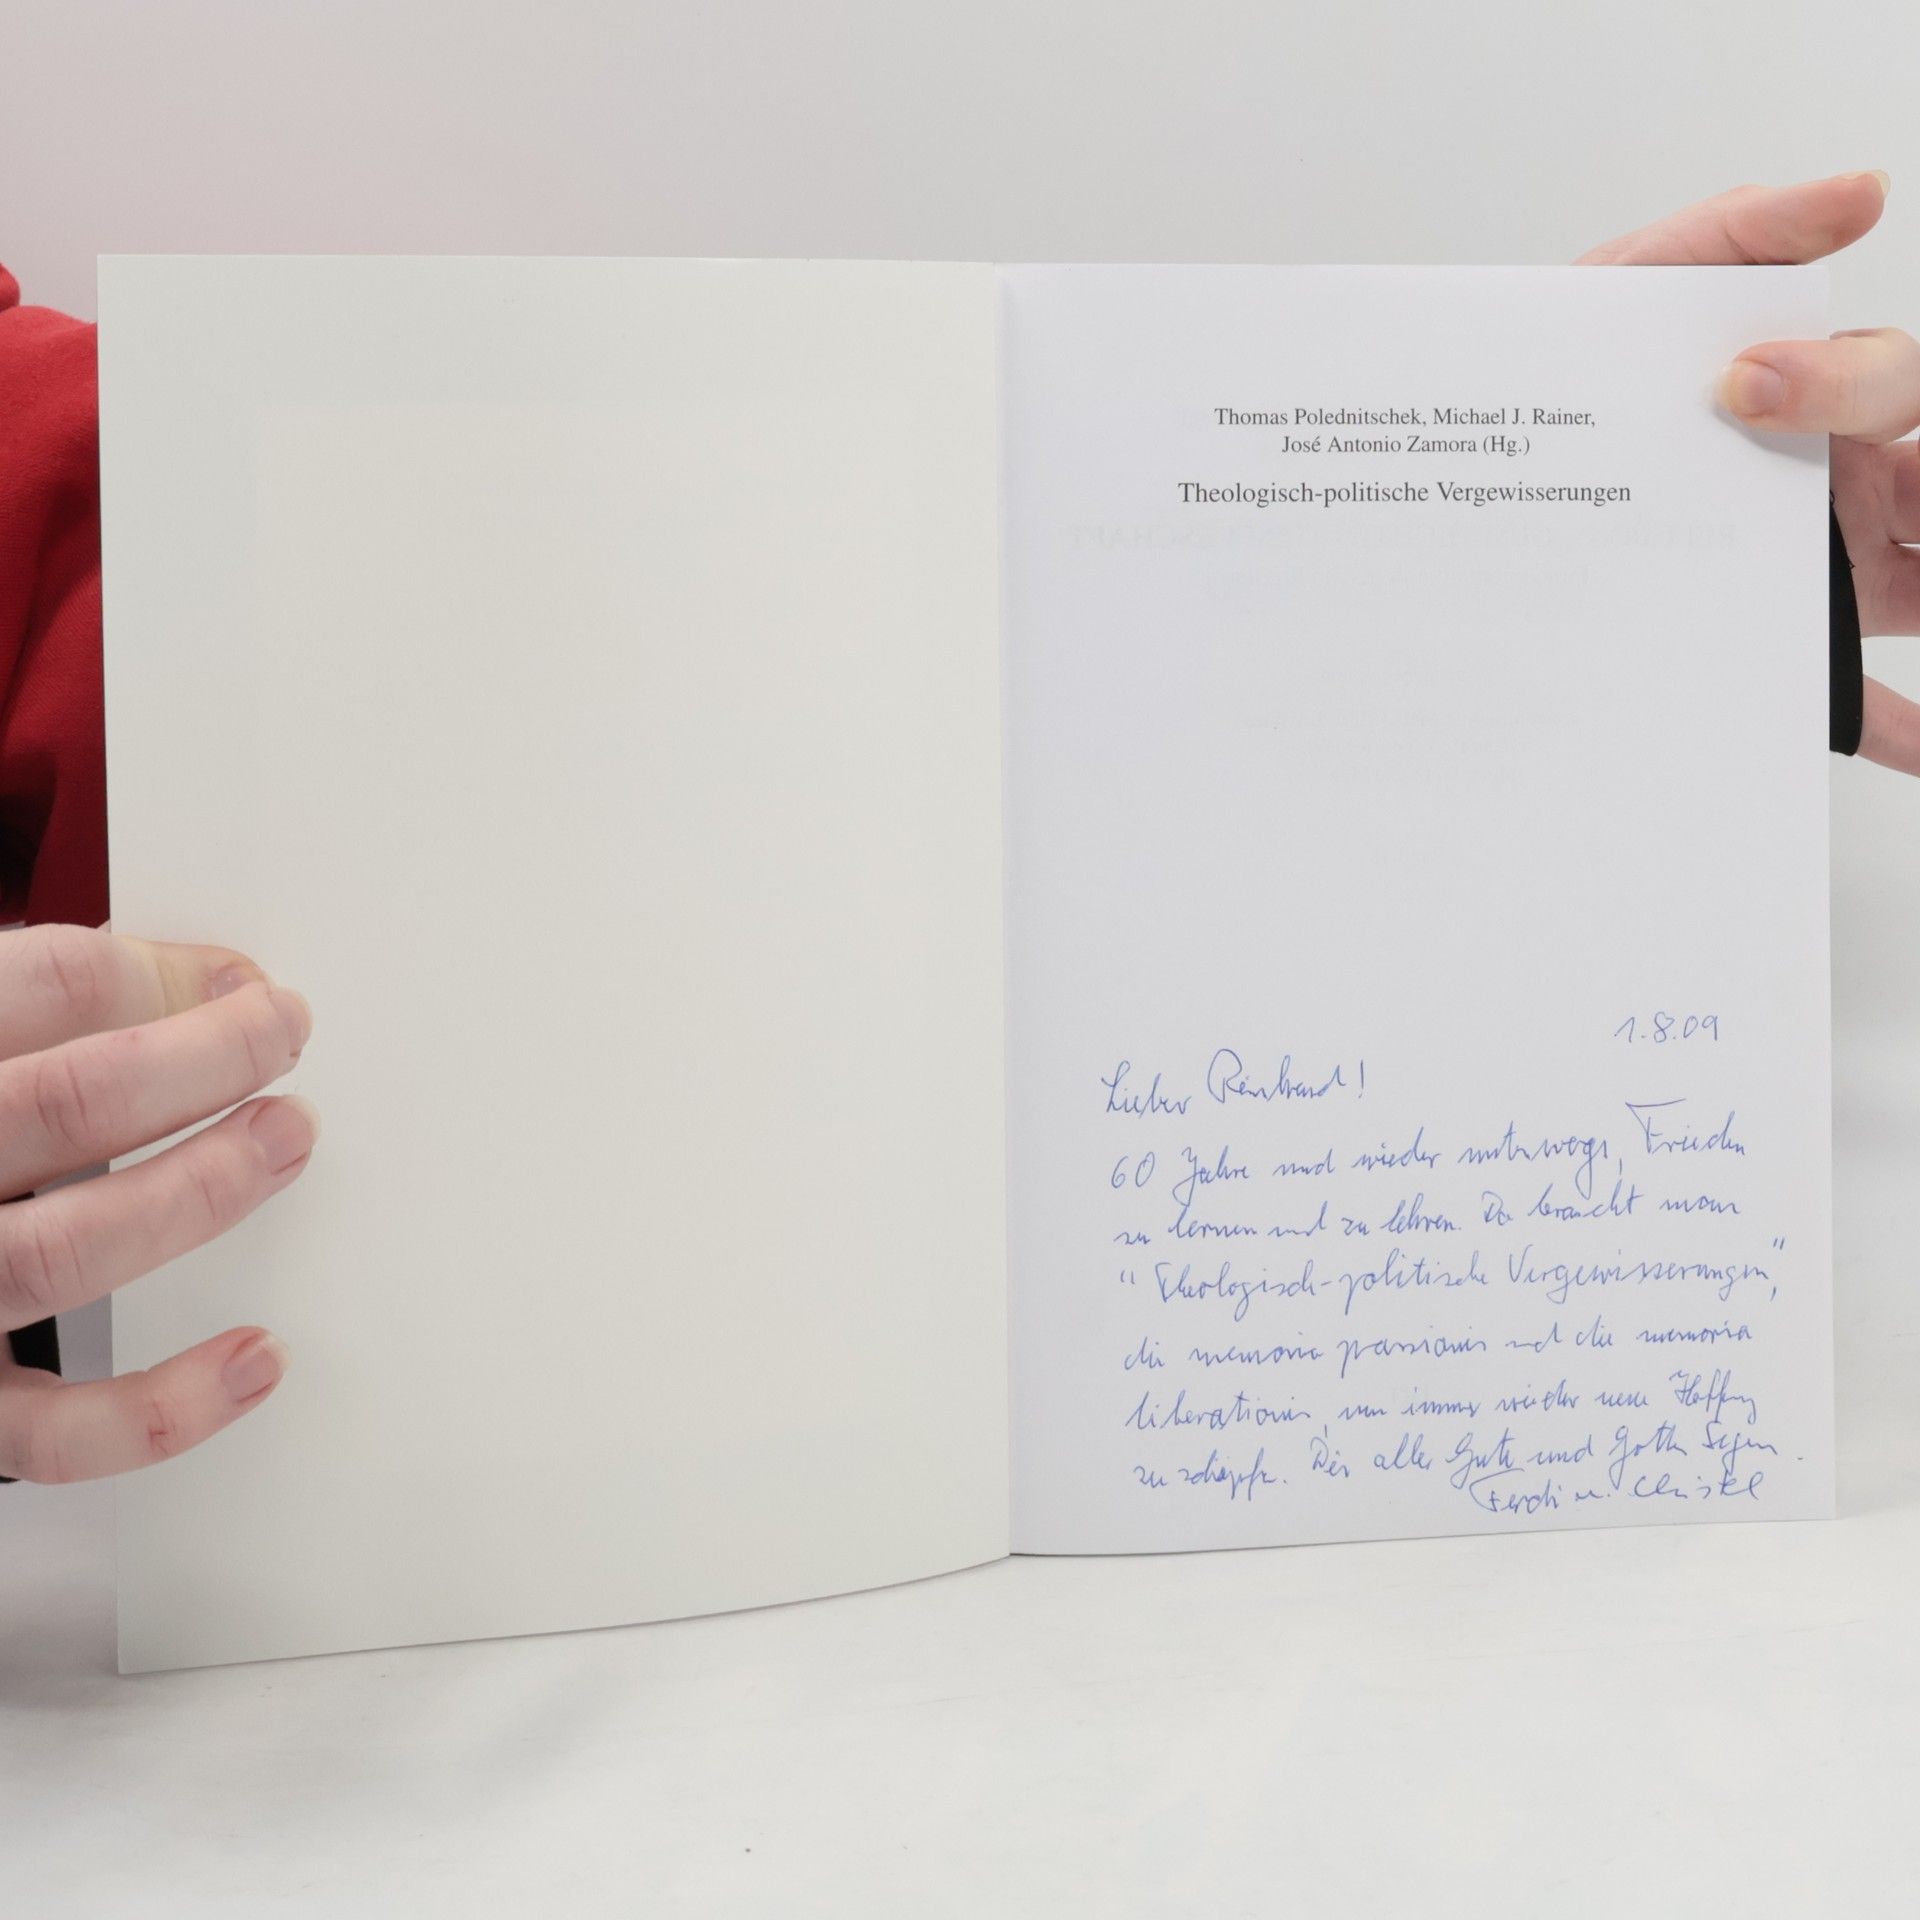 Thomas Polednitschek, Michael J. Rainer,
José Antonio Zamora (Hg.)
Theologisch-politische Vergewisserungen
1.8.09
Lieber Reinhard!
60 Jahre und wieder unterwegs, Frieden
zu lernen und zu lehren. Da braucht man
"Theologisch-politische Vergewisserungen",
die memoria passionis und die memoria
liberationis, um immer wieder neue Hoffnung
zu schöpfen. Dir alles Gute und Gottes Segen.
Ferdi u. Christel